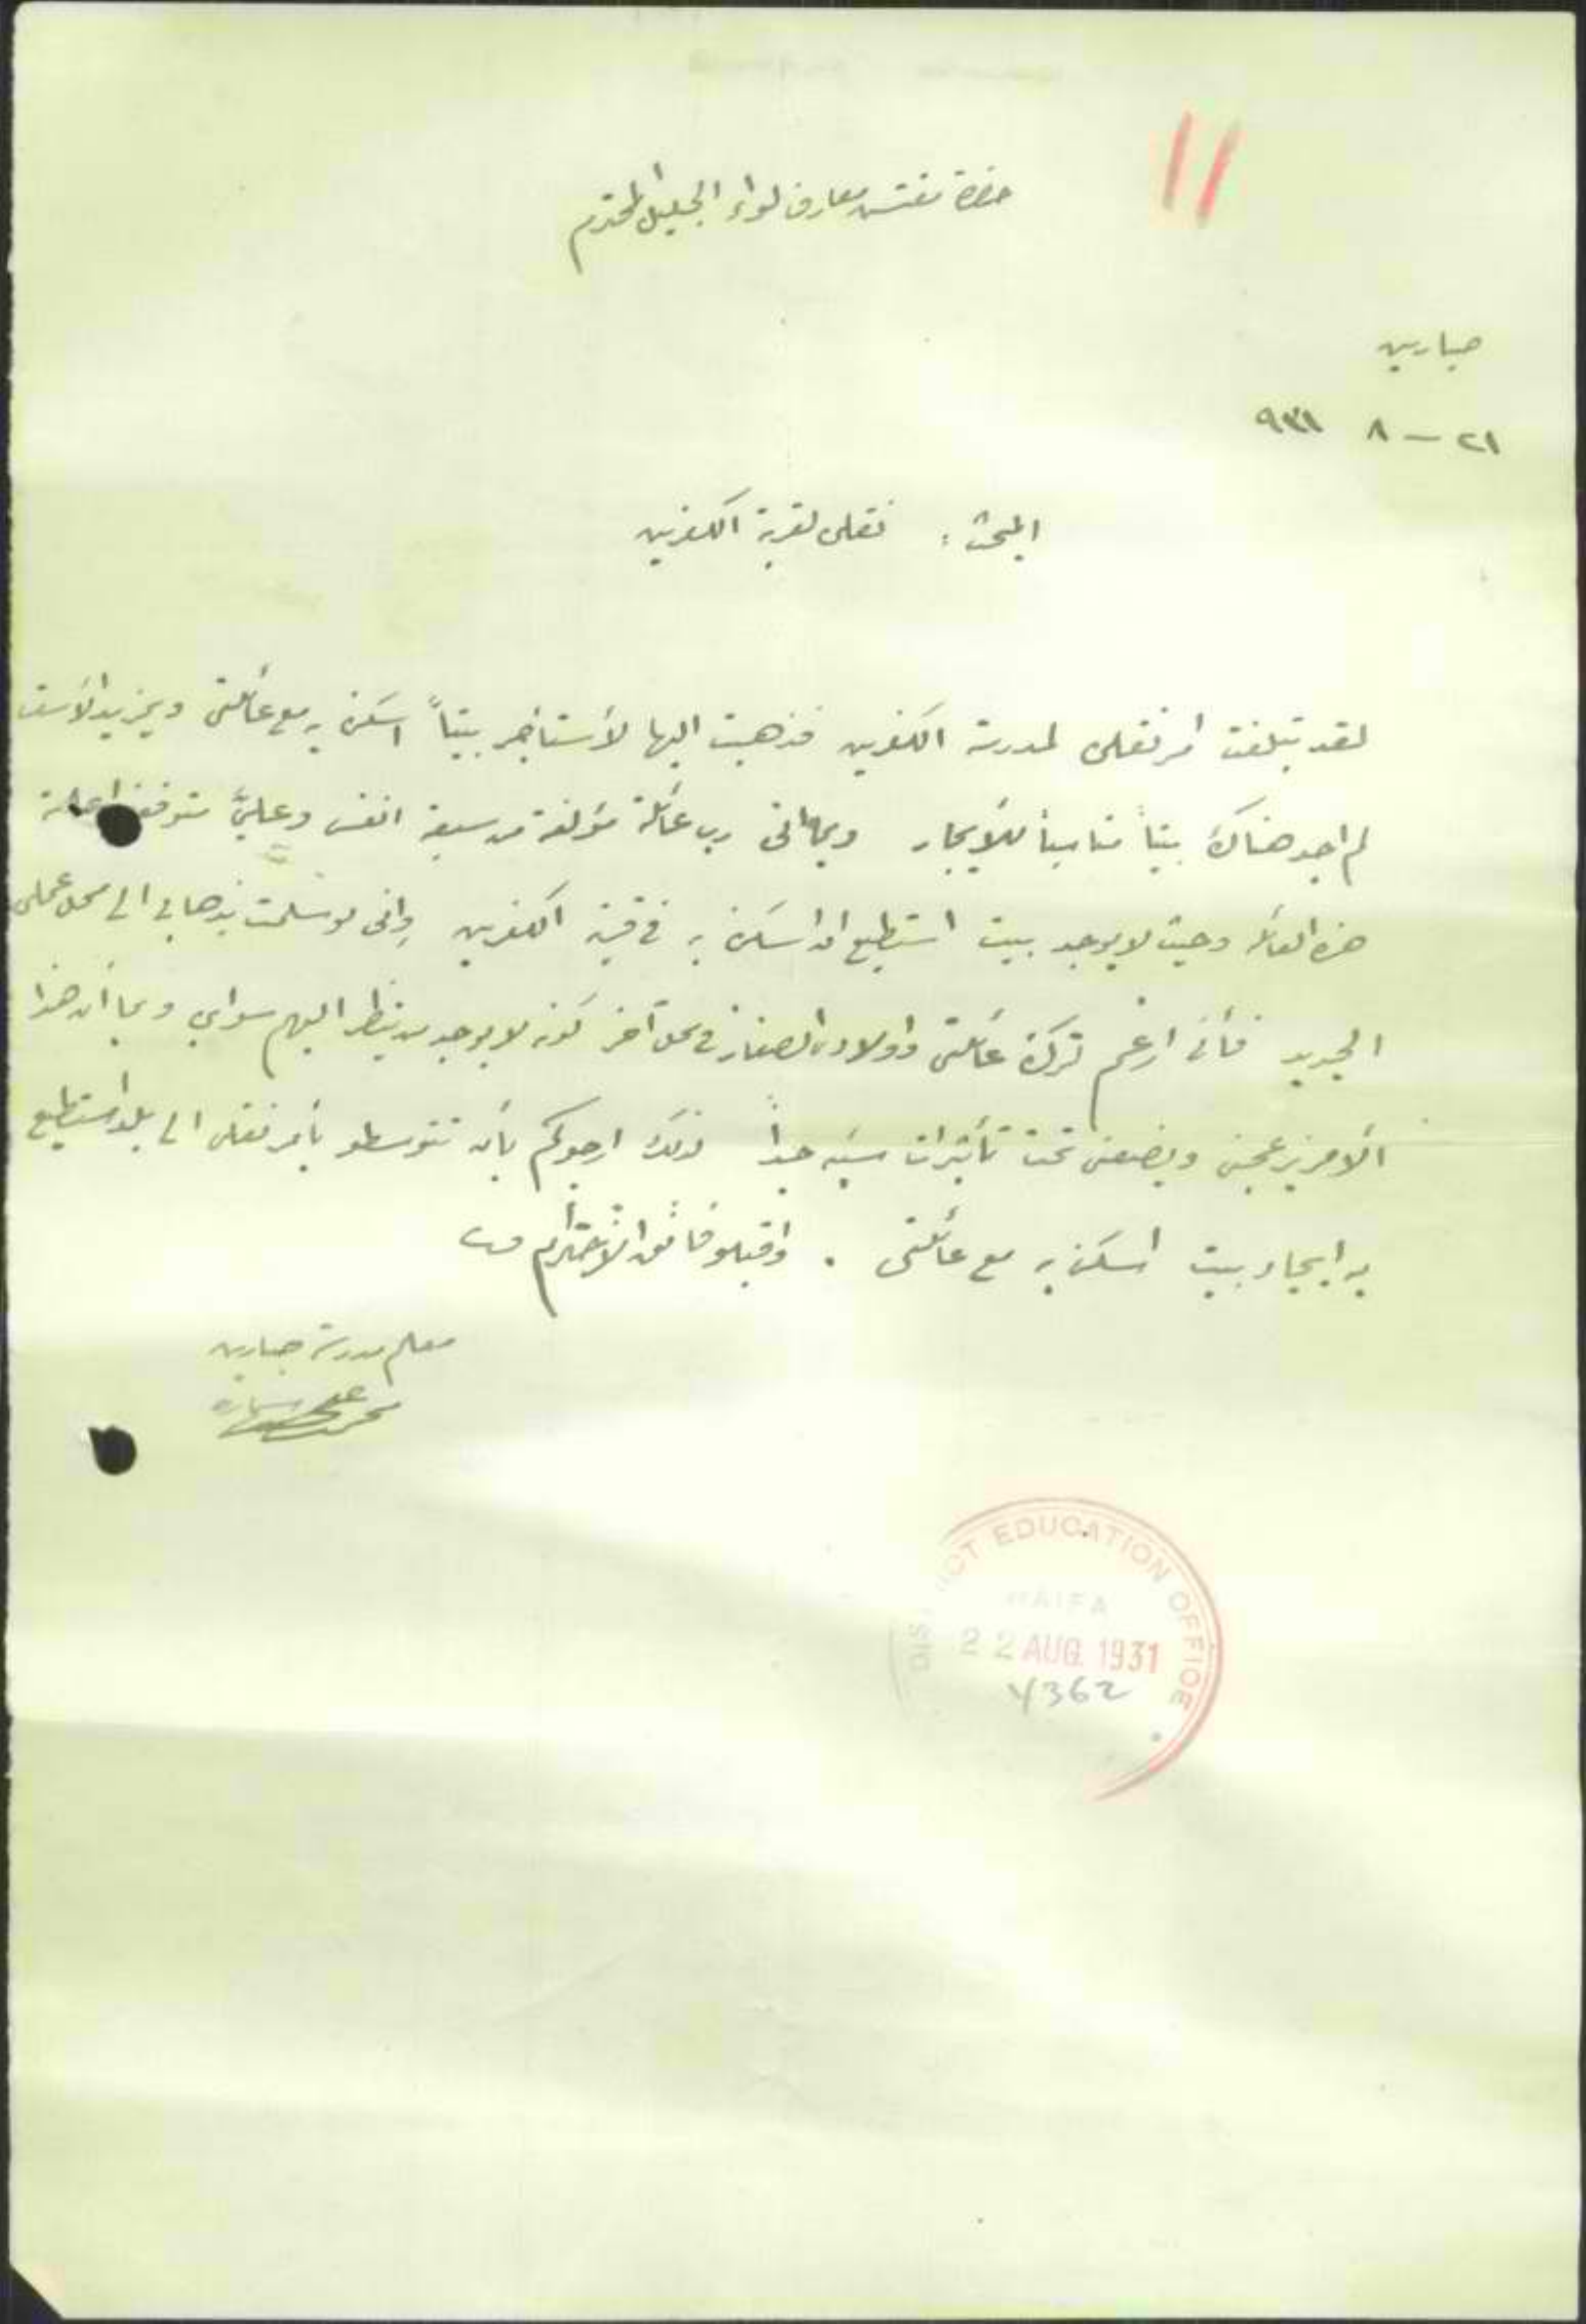 11
حضرة مفتش معارف لواء الجليل المحترم
صبارين
٢١ - ٨ ٩٣١
المبحث : نقلي لقرية الكفرين
لقد تبلغت امر نقلي لمدرسة الكفرين فذهبت اليها لأستأجر بيتاً اسكن به مع عائلتي وبمزيد الأسف
لم اجد هناك بيتاً مناسباً للأيجار وبما اني رب عائلة مؤلفة من سبعة انفس وعليَّ متوقف اعالة
هذه العائلة وحيث لا يوجد بيت استطيع ان اسكن به في قرية الكفرين واني لو سلمت بذهابي الى محل عملي
الجديد فأني ارغم لترك عائلتي واولادي الصغار في محل آخر كونه لا يوجد من ينظر اليهم سواي وبما أن هذا
الأمر يزعجني ويضعني تحت تأثيرات سيئه جداً لذلك ارجوكم بأن تتوسطو بأمر نقلي الى بلد استطيع
به ايجاد بيت اسكن به مع عائلتي . واقبلو فائق الأحترام
معلم مدرسة صبارين
محمد علي
DISTRICT EDUCATION OFFICE
HAIFA
22 AUG. 1931
4362